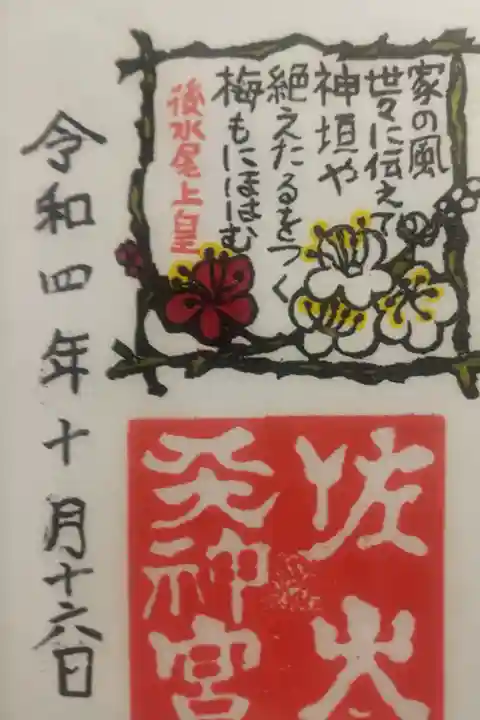 家の風
世々に伝えて
神垣や
絶えたるをつく
梅もにほはむ
後水尾上皇
佐太
天神宮
令和四年十月十六日